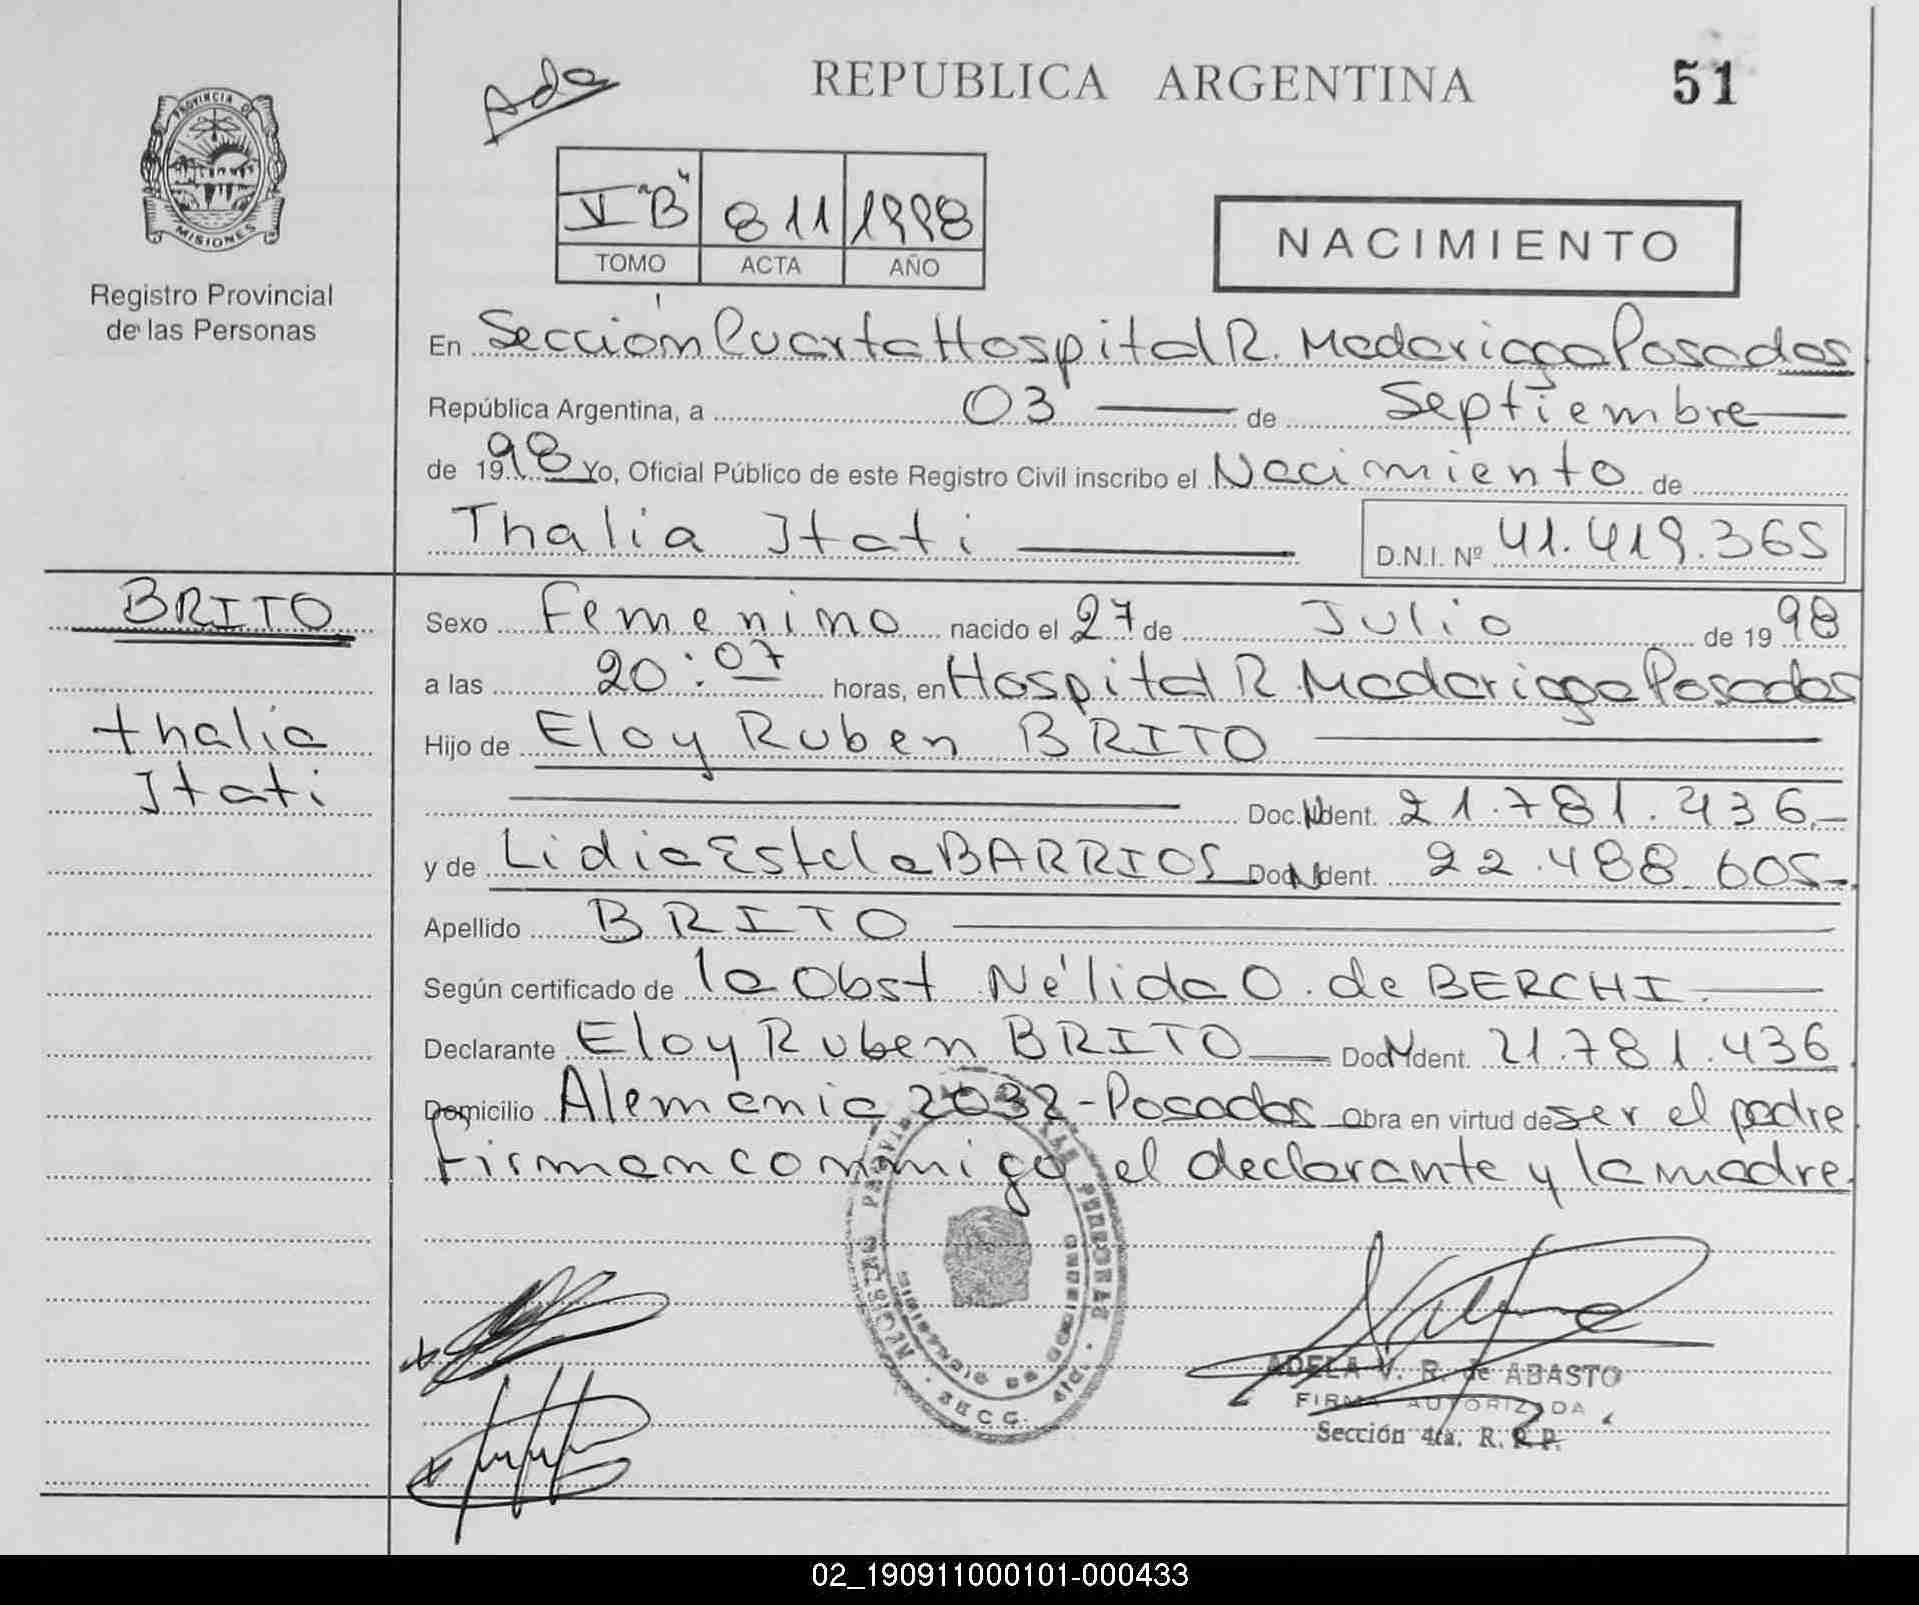 Ada
REPUBLICA ARGENTINA
51
PROVINCIA DE
MISIONES
Registro Provincial
de las Personas
V "B" 811 1998
TOMO ACTA AÑO
NACIMIENTO
En Sección Cuarta Hospital R. Madariaga Posadas
República Argentina, a 03 de Septiembre
de 1998 Yo, Oficial Público de este Registro Civil inscribo el Nacimiento de
Thalia Itati D.N.I. Nº 41.419.365
BRITO
Thalia
Itati
Sexo Femenino nacido el 27 de Julio de 1998
a las 20:07 horas, en Hospital R. Madariaga Posadas
Hijo de Eloy Ruben BRITO
Doc. Ident. 21.781.436
y de Lidia Estela BARRIOS Doc. Ident. 22.488.605
Apellido BRITO
Según certificado de la Obst Nélida O. de BERCHI
Declarante Eloy Ruben BRITO Doc. Ident. 21.781.436
Domicilio Alemania 2032-Posadas Obra en virtud de ser el padre
Firman conmigo el declarante y la madre
ADELA V. R. de ABASTO
FIRMA AUTORIZADA
Sección 4ta. R. R. P.
02_190911000101-000433